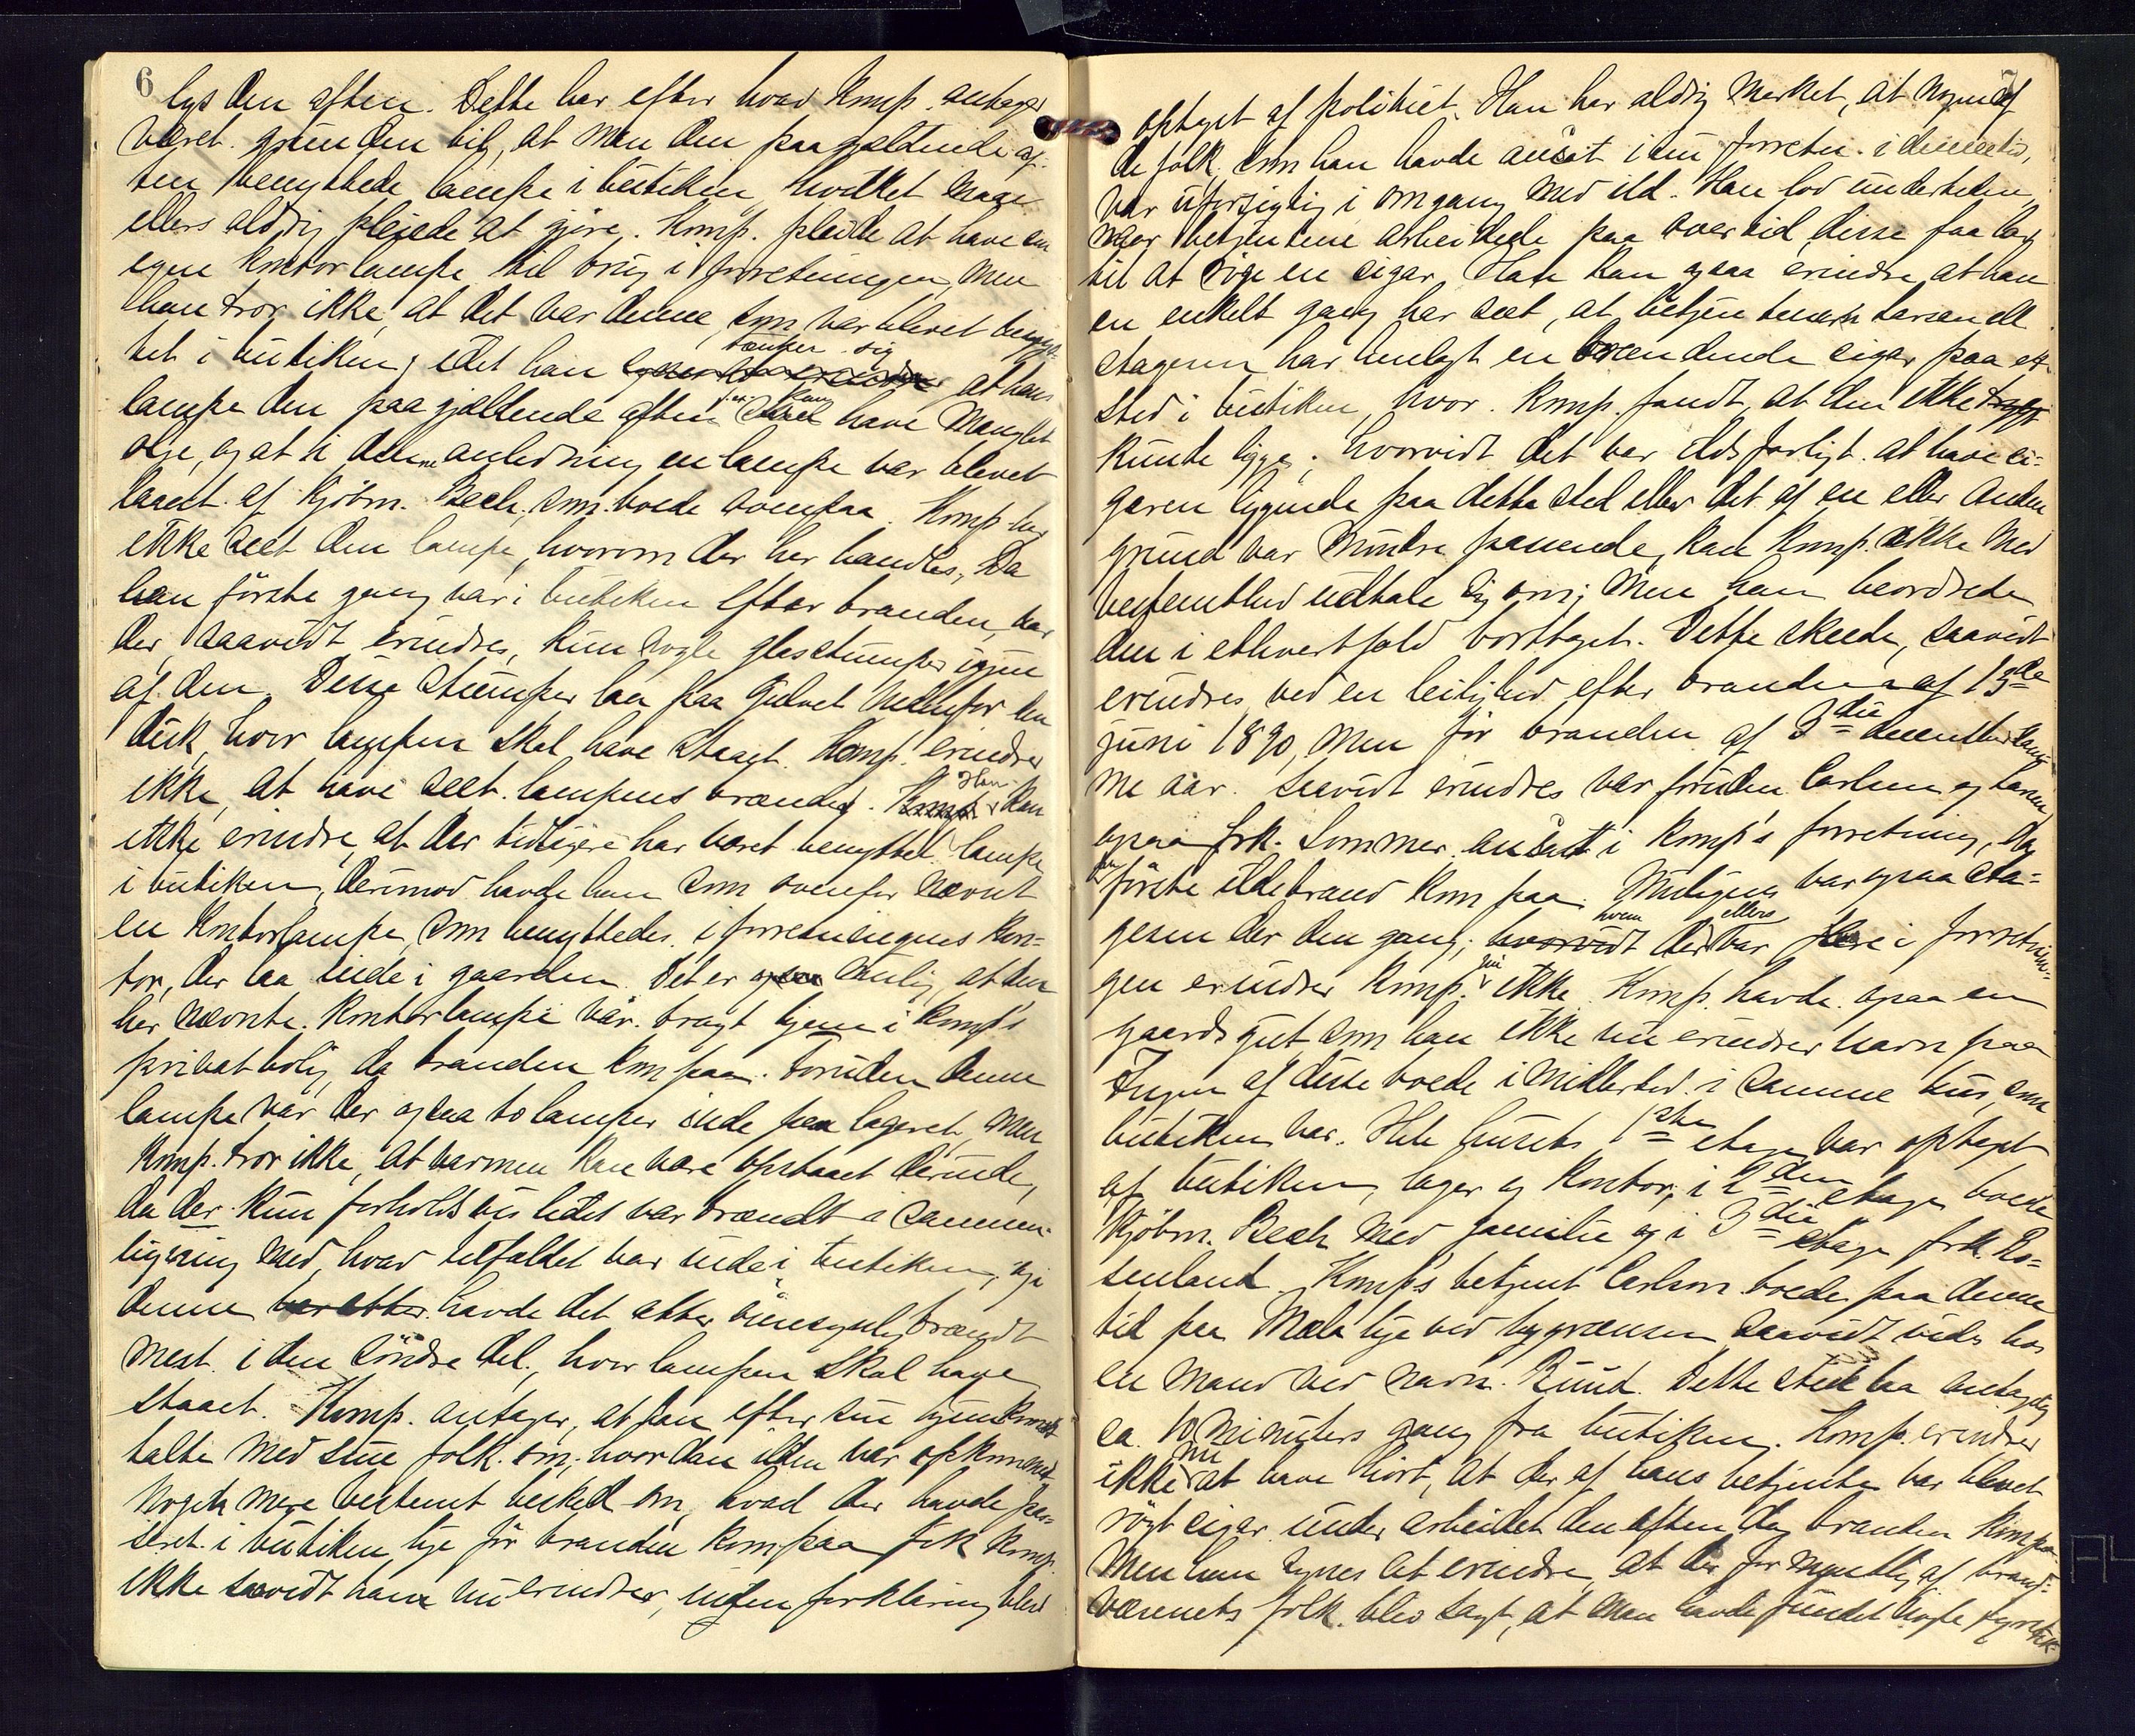 6
lys den aften. Dette har efter hvad Komp. antager
været grunden til, at man den paagjældende af-
ten benyttede lampe i butiken, hvilket man
ellers aldrig pleiede at gjøre. Komp. pleide at have en
egen kontorlampe til brug i forretningen, men
han tror ikke, at det var denne som var blevet benyt-
tænker sig
tet i butiken, idet han at hans
lampe den paagjældende aften kan have manglet
olje, og at i denne anledning en lampe var blevet
laant af Kjøbm. Bech, som boede ovenpaa. Komp. har
ikke seet den lampe, hvorom der her handles. Da
han første gang var i butiken efter branden, var
der, saavidt erindres, kun nogle glasstumper igjen
af den. Disse stumper laa paa gulvet nedenfor den
disk, hvor lampen skal have staaet. Komp. erindrer
ikke at have seet lampens brænder. Komp. Han kan
ikke erindre, at der tidligere har været benyttet lampe
i butiken, derimod havde han som ovenfor nævnt
en kontorlampe, som benyttedes i forretningens kon-
tor, der laa inde i gaarden. Det er ogsaa mulig, at den
her nævnte kontorlampe var bragt hjem i Komp's
privatbolig, da branden kom paa. Foruden denne
lampe var der ogsaa to lamper inde paa lageret, men
Komp. tror ikke, at varmen kan være opstaaet derinde,
da der kun forholdsvis lidet var brændt i sammen-
ligning med, hvad tilfældet var inde i butiken, og i
denne havde det atter øiensynlig brændt
mest i den søndre del, hvor lampen skal have
staaet. Komp. antager, at han efter sin hjemkomst
talte med sine folk om, hvordan ilden var opkommet
Nogen mere bestemt besked om, hvad der havde pas-
seret i butiken lige før branden kom paa fik Komp.
ikke saavidt han nu erindrer, uden forklaring blev
optaget af politiet. Han har aldrig mærket, at nogen af
de folk, som han havde ansat i sin forretn.
var uforsigtig i omgang med ild. Han lod undertiden,
naar betjentene arbeidede paa overtid, disse faa lov
til at røge en cigar. Han kan ogsaa erindre, at han
en enkelt gang har seet, at betjenten Larsen ell.
stageren har henlagt en brændende cigar paa et
sted i butiken, hvor Komp. fandt, at den ikke
kunde ligge; hvorvidt det var ildsfarligt at have ci-
garen liggende paa dette sted eller det af en eller anden
grund var mindre passende, kan Komp. ikke med
bestemthed udtale sig om; men han beordrede
den i ethvert fald borttaget. Dette skeede, saavidt
erindres ved en leilighed efter branden af 13de
juni 1890, men før branden af 3die december sam-
me aar. Saavidt erindres var foruden Carlsen og Larsen
ogsaa frk. Sommer ansat i Komp's forretning, da
den første ildebrand kom paa. Muligens var ogsaa sta-
geren der den gang; hvem der ellers var i forretnin-
gen erindrer Komp. nu ikke. Komp. havde ogsaa en
gaardsgut som han ikke nu erindrer navn paa
Ingen af disse boede imidlertid i samme hus, som
butiken var. Hele husets 1ste etage var optaget
af butiken, lager og kontor; i 2den etage boede
Kjøbm. Bech med familie og i 3die etage frk. Ro-
senland. Komp's betjent Carlsen boede paa denne
tid paa Mæla lige ved bygrænsen, saavidt vides hos
en mand ved navn Ruud. Dette sted laa antagelig
ca. 10 minuters gang fra butiken. Komp. erindrer
ikke nu at have hørt, at der af hans betjente var blevet
røgt cigar under arbeidet den aften da branden kom paa
Men han synes at erindre, at der formentlig af brand-
væsenets folk blev sagt, at man havde fundet nogle fyrstik-